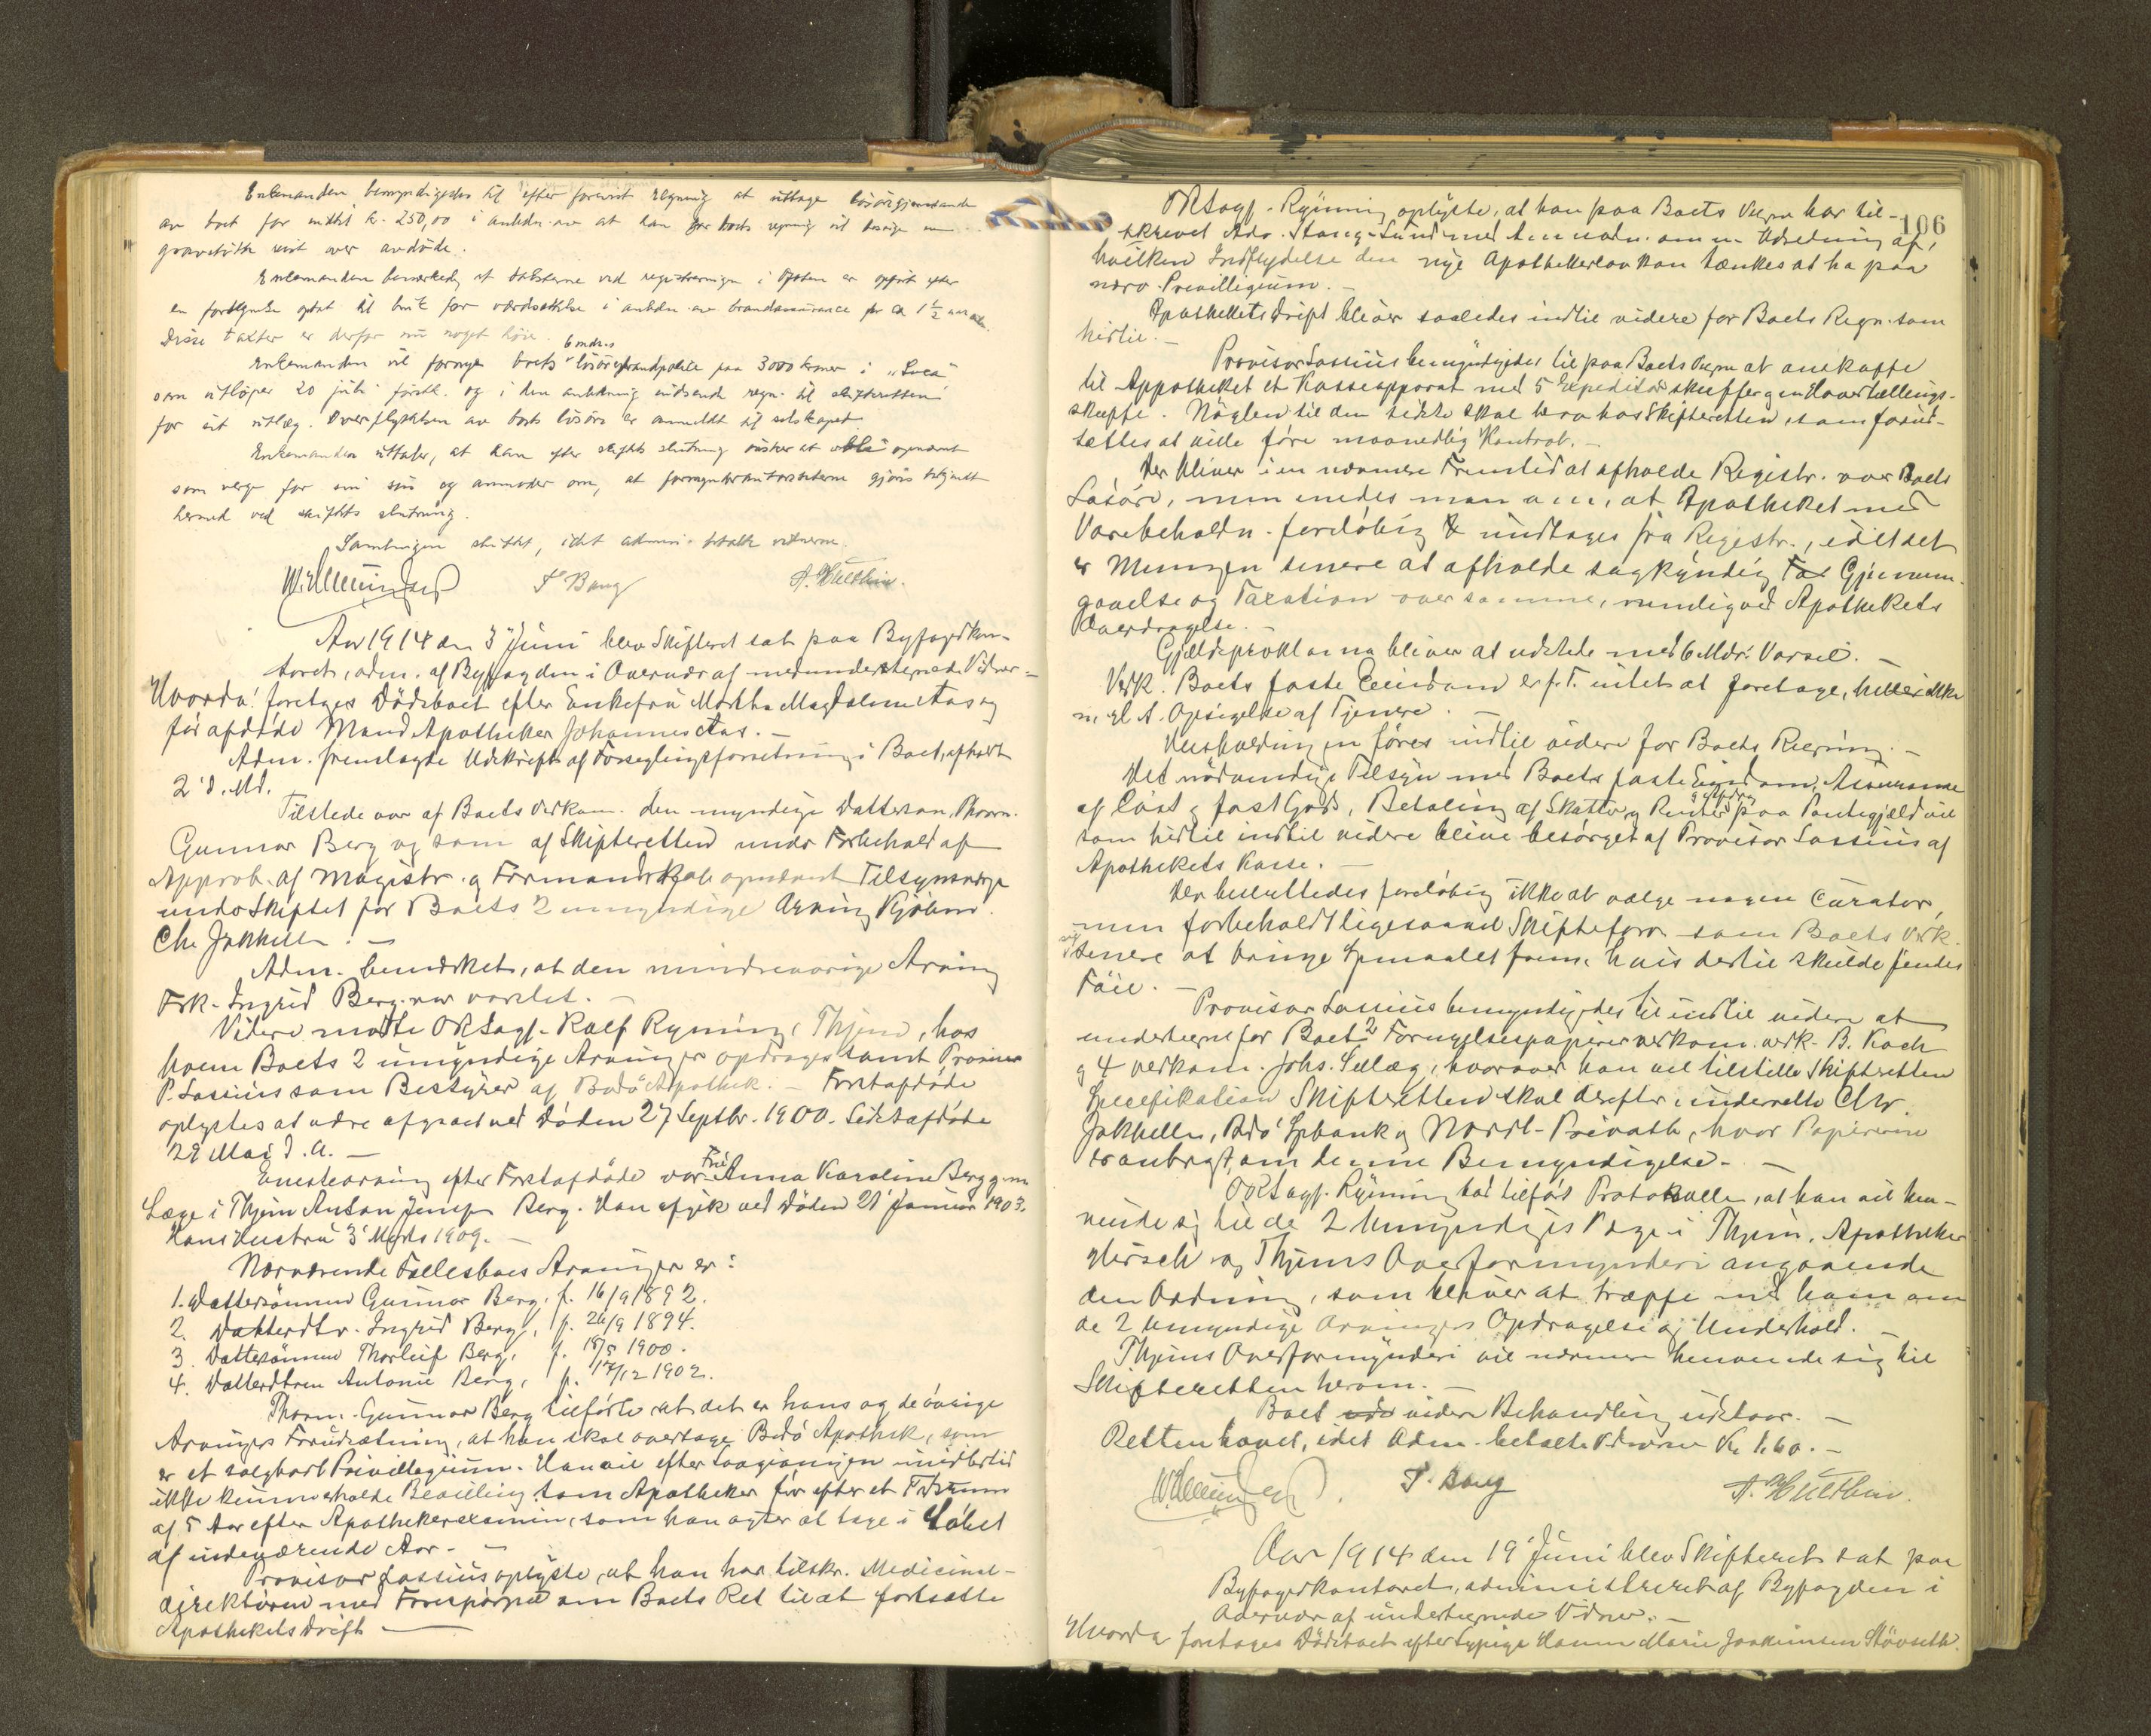 Enkemanden bemyndigedes til efter forevist regning at uttage løsøregjenstande
av boet for indtil kr. 250,00 i anledn. av at han for boets regning vil besørge
gravstøtte reist over avdøde.
Enkemanden bemerkede, at taksterne ved registreringen i posten er opført efter
en fortegnelse optat til bruk for værdsættelse i anledn. av brandassurance for ca 1 1/2 aar
Disse taxter er derfor nu noget høie.
6 mdrs
Enkemanden vil fornye boets løsørebrandpolice paa 3000 kroner i "Svea"
som utløper 20 juli førstk. og i den anledning indsende regn. til skifteretten
for sit utlæg. Overflyttelsen av boets løsøre er anmeldt til selskapet.
Enkemanden uttaler, at han efter skiftets slutning ønsker at bli opnævnt
som verge for sin søn og anmoder om, at formynderautoriteterne gjøres bekjendt
hermed ved skiftets slutning.
Samlingen sluttet, idet admin. betalte vidnerne.
S Bang A. Hulthin.
Aar 1914 den 3' Juni blev Skifteret sat paa Byfogdkon-
toret, adm. af Byfogden i Overvær af medundertegnede Vidner =
Hvorda! foretoges Dødsboet efter Enkefru Martha Magdalene Aas og
før afdøde Mand Apotheker Johannes Aas. -
Adm. fremlagde Udskrift af Forseglingsforretning i Boet, afholdt
2' d. Md.
Tilstede var af Boets Vedkom. den myndige Dattersøn, Pharm.
Gunnar Berg og som af Skifteretten under Forbehold af
Approb. af Magistr. og Formandskab opnævnt Tilsynsværge
under Skiftet for Boets 2 umyndige Arving Kjøbm.
Chr Jakhelln. -
Adm. bemærket, at den mindreaarige Arving
Frk. Ingrid Berg var varslet. -
Videre mødte ORSagf. Ralf Ryning, Thjem, hos
hvem Boets 2 umyndige Arvinger opdrages samt Provisor
P. Lassius som Bestyrer af Bodø Apothek. - Førstafdøde
oplystes at være afgaaet ved Døden 27 Septbr. 1900. Sidstafdøde
29 Mai d. A. -
Enestearving efter Førstafdøde var Fru Anna Karoline Berg gm
Læge i Thjem Anton Jensen Berg. Han afgik ved Døden 21' Januar 1903.
Hans Hustru 3' Marts 1909. -
Nærværende Fællesboes Arvinger er:
1. Dattersønnen Gunnar Berg, f. 16/9 1892.
2. Datterdtr. Ingrid Berg, f. 26/9 1894.
3. Dattersønnen Thorleif Berg, f. 18/5 1900.
4. Datterdtren Antonie Berg, f. 17/12 1902.
Pharm. Gunnar Berg tilførte at det er hans og de øvrige
Arvingers Forudsætning, at han skal overtage Bodø Apothek, som
er et salgbart Privilegium. Han vil efter Lovgivningen imidlertid
ikke kunne erholde Bevilling som Apotheker før efter et Tidsrum
af 5 Aar efter Apothekerexamen, som han agter at tage i Løbet
af indeværende Aar. -
Provisor Lassius oplyste, at han har tilskr. Medicinal-
direktøren med Forespørgsel om Boets Ret til at fortsætte
Apothekets Drift. -
106
ORSagf. Ryning oplyste, at han paa Boets Vegne har til-
skrevet Adv. Stang-Lund med Anmodn. om en Udredning af,
hvilken Indflydelse den nye Apothekerlov kan tænkes at ha paa
nærv. Privilegium. -
Apothekets Drift bliver saaledes indtil videre for Boets Regn. som
hidtil. -
Provisor Lassius bemyndigedes til paa Boets Vegne at anskaffe
til Appotheket et Kasseapparat med 5 Expeditørskuffer og en Hovedtællings-
skuffe. Nøglen til den sidste skal bero hos Skifteretten, som forud-
sættes at ville føre maanedlig Kontrol. -
Der bliver i en nærmere Fremtid at afholde Registr. over Boets
Løsøre, men enedes man om, at Apotheket med
Varebeholdn. foreløbig undtages fra Registr., idet det
er Meningen senere at afholde sagkyndig Gjennem-
gaaelse og Taxation over samme, nemlig ved Apothekets
Overdragelse. -
Gjældsproklama bliver at udstede med 6 Mdrs Varsel. -
Vedk. Boets faste Eiendom er f. T. intet at foretage, heller ikke
m. H. t. Opsigelse af Tjenere. -
Husholdningen føres indtil videre for Boets Regning. -
Det nødvendige Tilsyn med Boets faste Eiendom, Assurance
af Løst og fast Gods, Betaling af Skatter og Renter og Afdrag paa Pantegjæld vil
som hidtil indtil videre blive besørget af Provisor Lassius af
Apothekets Kasse. -
Der besluttedes foreløbig ikke at vælge nogen Curator,
men forbeholdt ligesaavel Skifteforv. som Boets Vedk.
sig senere at bringe Spmaalet frem, hvis dertil skulde findes
Føie. -
Provisor Lassius bemyndigedes til indtil videre at
undertegne for Boet 2 Fornyelsespapirer vedkom. vedk. B. Koch
og 4 vedkom. Johs. Sellæg, hvorover han vil tilstille Skifteretten
Specifikation. Skifteretten skal derefter underrette Chr.
Jakhelln, Bodø Spbank og Nordl. Privatb, hvor Papirerne
er anbragt, om denne Bemyndigelse. -
ORSagf. Ryning bad tilført Protokollen, at han vil hen-
vende sig til de 2 Umyndiges Værge i Thjem, Apotheker
Hirsch og Thjems Overformynderi angaaende
den Ordning, som bliver at træffe med ham om
de 2 umyndige Arvingers Opdragelse og Underhold. -
Thjems Overformynderi vil nærmere henvende sig til
Skifteretten herom. -
Boet videre Behandling udstaar. -
Retten hævet, idet Adm. betalte Vidnerne Kr 1.60. -
S. Bang A. Hulthin.
Aar 1914 den 19' Juni blev Skifteret sat paa
Byfogedkontoret, administreret af Byfogden i
Overvær af undertegnede Vidner. -
Hvorda foretages Dødsboet efter Sypige Hanna Marie Joakimsen Støvseth.